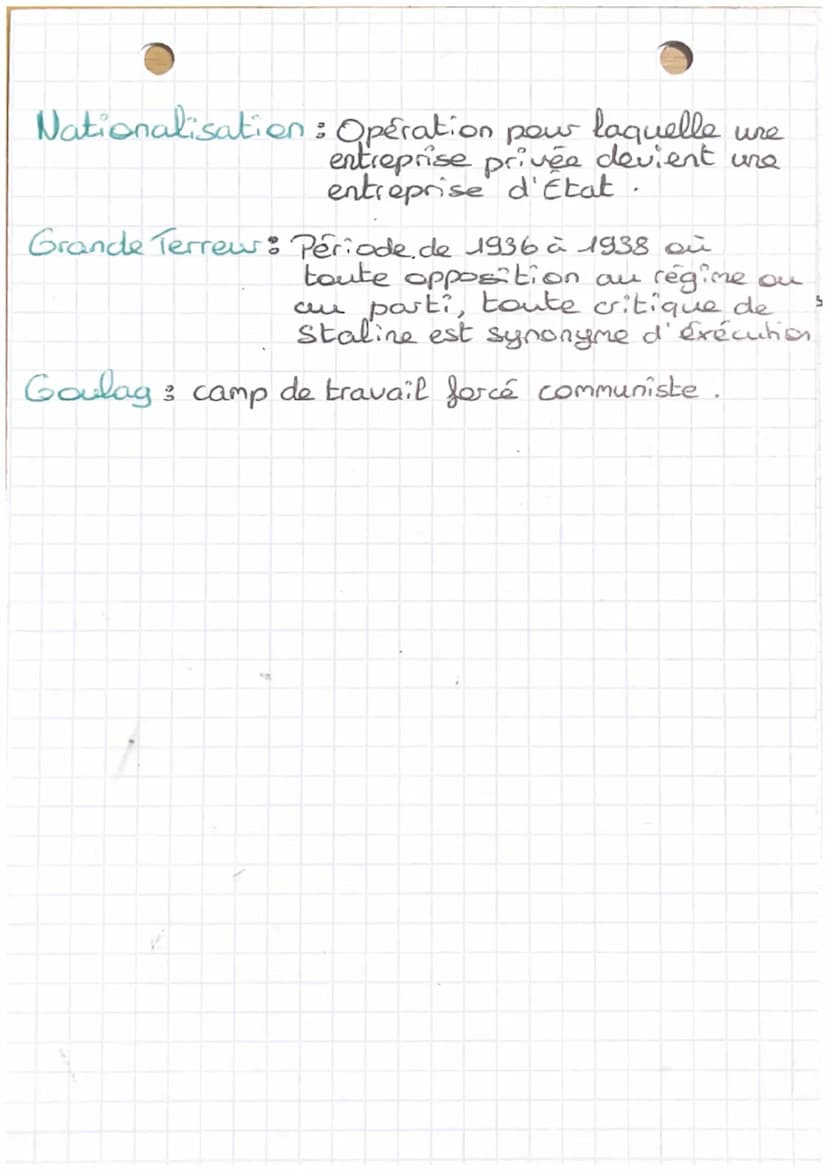 Nationalisation : Opération pour laquelle une
entreprise privée devient une
entreprise d'État.
Grande Terreur : Période de 1936 à 1938 où
toute opposition au régime ou
au parti, toute critique de
Staline est synonyme d'éxécution
Goulag : camp de travail forcé communiste.